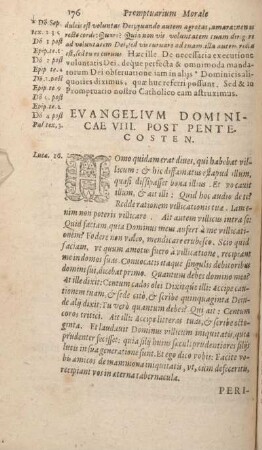 176 Promptuarium Morale
dulcis est voluntas Dei, quando autem
est, sed cum tremore Hæc ille. De necessaria executione
voluntatis Dei, deque perfecta & omnimoda mandatorum Dei observatione iam in aliis
quoties diximus, quæ interferri possunt, Sed & in
Promptuario nostro Catholico eam astruximus.
EVANGELIVM DOMINI-
CAE VIII. POST PENTE-
COSTEN.
Luca. 16.
HOmo quidam erat dives, qui habebat vil-
licum: & hic diffamatus est apud illum,
quasi dissipasset bona illius. Et vocavit
illum, & ait illi: Quid hoc audio de te?
Redde rationem villicationis tuæ. Iam e-
nim non poteris villicare. Ait autem villicus intra se:
Quid faciam, quia Dominus meus aufert à me villicati-
onem? Fodere non valeo, mendicare erubesco. Scio quid
faciam, ut quum amotus fuero à villicatione, recipiant
me in domos suas. Convocatis itaque singulis debitoribus
domini sui, dicebat primo. Quantum debes domino meo?
At ille dixit: Centum cados olei. Dixitque illi: accipe cau-
tionem tuam, & sede citò, & scribe quinquaginta. Dein-
de alii dixit: Tu verò quantum debes? Qui ait: Centum
coros tritici. Ait illi: Accipe litteras tuas, & scribe octo-
ginta. Et laudavit Dominus villicum iniquitatis, quia
prudenter fecisset: quia filii huius seculi prudentiores filiis
lucis in sua generatione sunt. Et ego dico vobis: Facite vo-
bis amicos de mammona iniquitatis, ut, cum defeceritis,
recipiant vos in æterna tabernacula.
PERI-